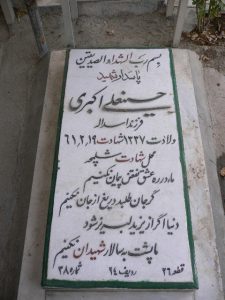 بسم رب الشهدا والصدیقین
پاسدار شهید
حسنعلی اکبری
فرزند اسدالله
ولادت ۱۳۳۷ شهادت ۶۱,۲,۱۹
محل شهادت شلمچه
ما در ره عشق نقض پیمان نکنیم
گر جان طلبد دریغ از جان نکنیم
دنیا اگر از یزید لبریز شود
ما پشت به سالار شهیدان نکنیم
قطعه ۲۶ ردیف ۹۴ شماره ۳۸